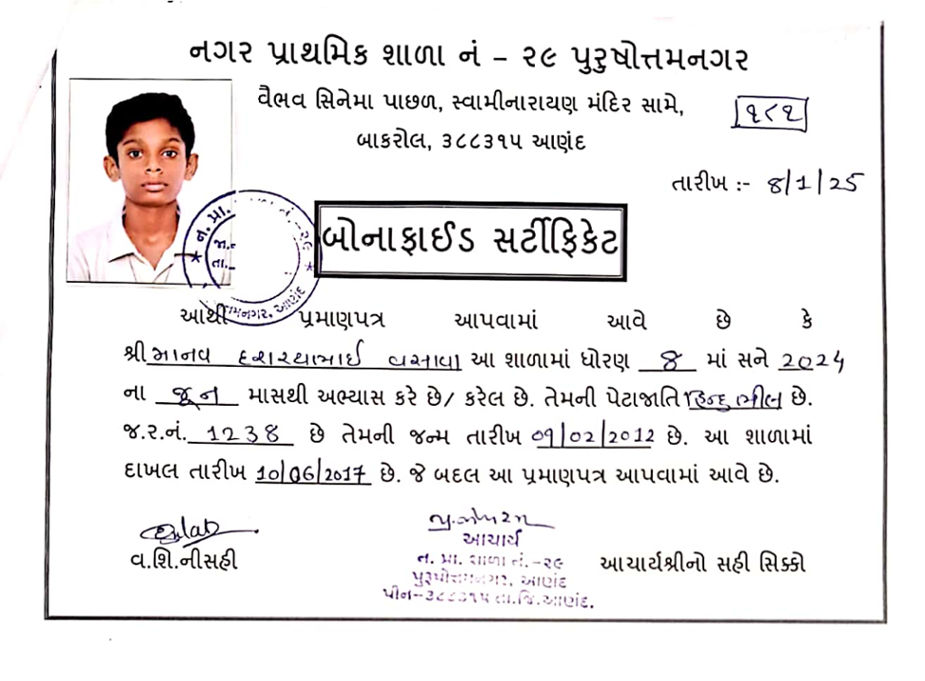 નગર પ્રાથમિક શાળા નં - ૨૯ પુરુષોત્તમનગર
વૈભવ સિનેમા પાછળ, સ્વામીનારાયણ મંદિર સામે,
બાકરોલ, ૩૮૮૩૧૫ આણંદ
૧૮૧
તારીખ :- 8/1/25
ન. પ્રા. નં.-૨૯
જા.
તા.
મનગર, આણંદ
બોનાફાઈડ સર્ટીફિકેટ
આથી પ્રમાણપત્ર આપવામાં આવે છે કે
શ્રી માનવ દશરથભાઈ વસાવા આ શાળામાં ધોરણ 8 માં સને 2024
ના જૂન માસથી અભ્યાસ કરે છે/ કરેલ છે. તેમની પેટાજાતિ હિન્દુ ભીલ છે.
જ.ર.નં. 1238 છે તેમની જન્મ તારીખ 09/02/2012 છે. આ શાળામાં
દાખલ તારીખ 10/06/2017 છે. જે બદલ આ પ્રમાણપત્ર આપવામાં આવે છે.
વ.શિ.નીસહી
આચાર્ય
ન. પ્રા. શાળા નં.-૨૯
પુરૂષોત્તમનગર, આણંદ
પીન-૩૮૮૩૧૫ તા.જિ.આણંદ.
આચાર્યશ્રીનો સહી સિક્કો